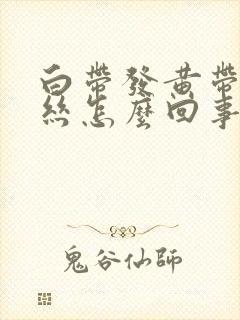 白帶發黃帶
絲怎麼回事
鬼谷仙師